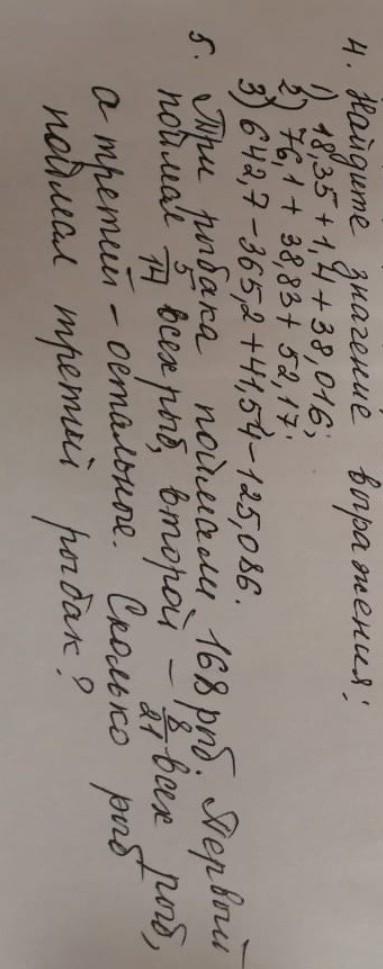 4. Найдите значение выражения:
1) 18,35 + 1,4 + 38,016;
2) 76,1 + 38,83 + 52,17;
3) 642,7 - 365,2 + 41,54 - 125,086.
5. Три рыбака поймали 168 рыб. Первый
поймал 5/14 всех рыб, второй - 8/21 всех рыб,
а третий - остальные. Сколько рыб
поймал третий рыбак?